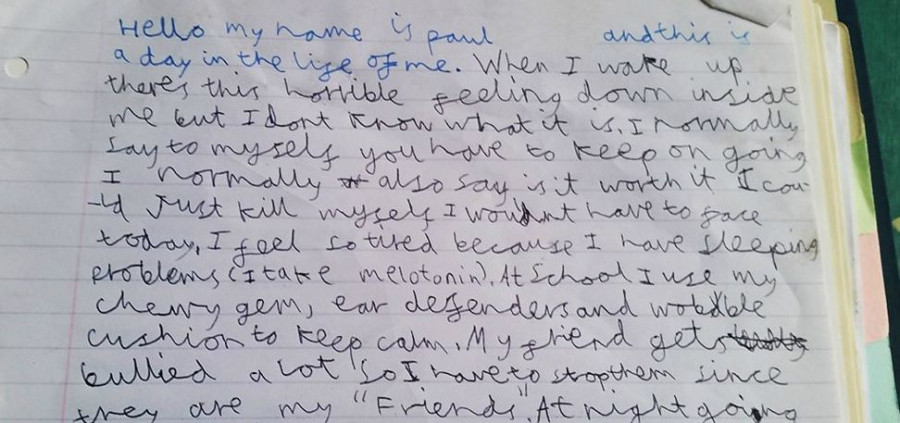 Hello my name is paul andthis is
a day in the life of me. When I wake up
theres this horrible feeling down inside
me but I dont know what it is. I normally
say to myself you have to keep on going
I normally also say is it worth it I cou-
-ld Just kill myself I wouldnt have to face
today, I feel so tired because I have sleeping
problems (I take melotonin). At school I use my
chewy gem, ear defenders and wobble
cushion to keep calm. My friend gets
bullied a lot so I have to stop them since
they are my "Friends". At night going